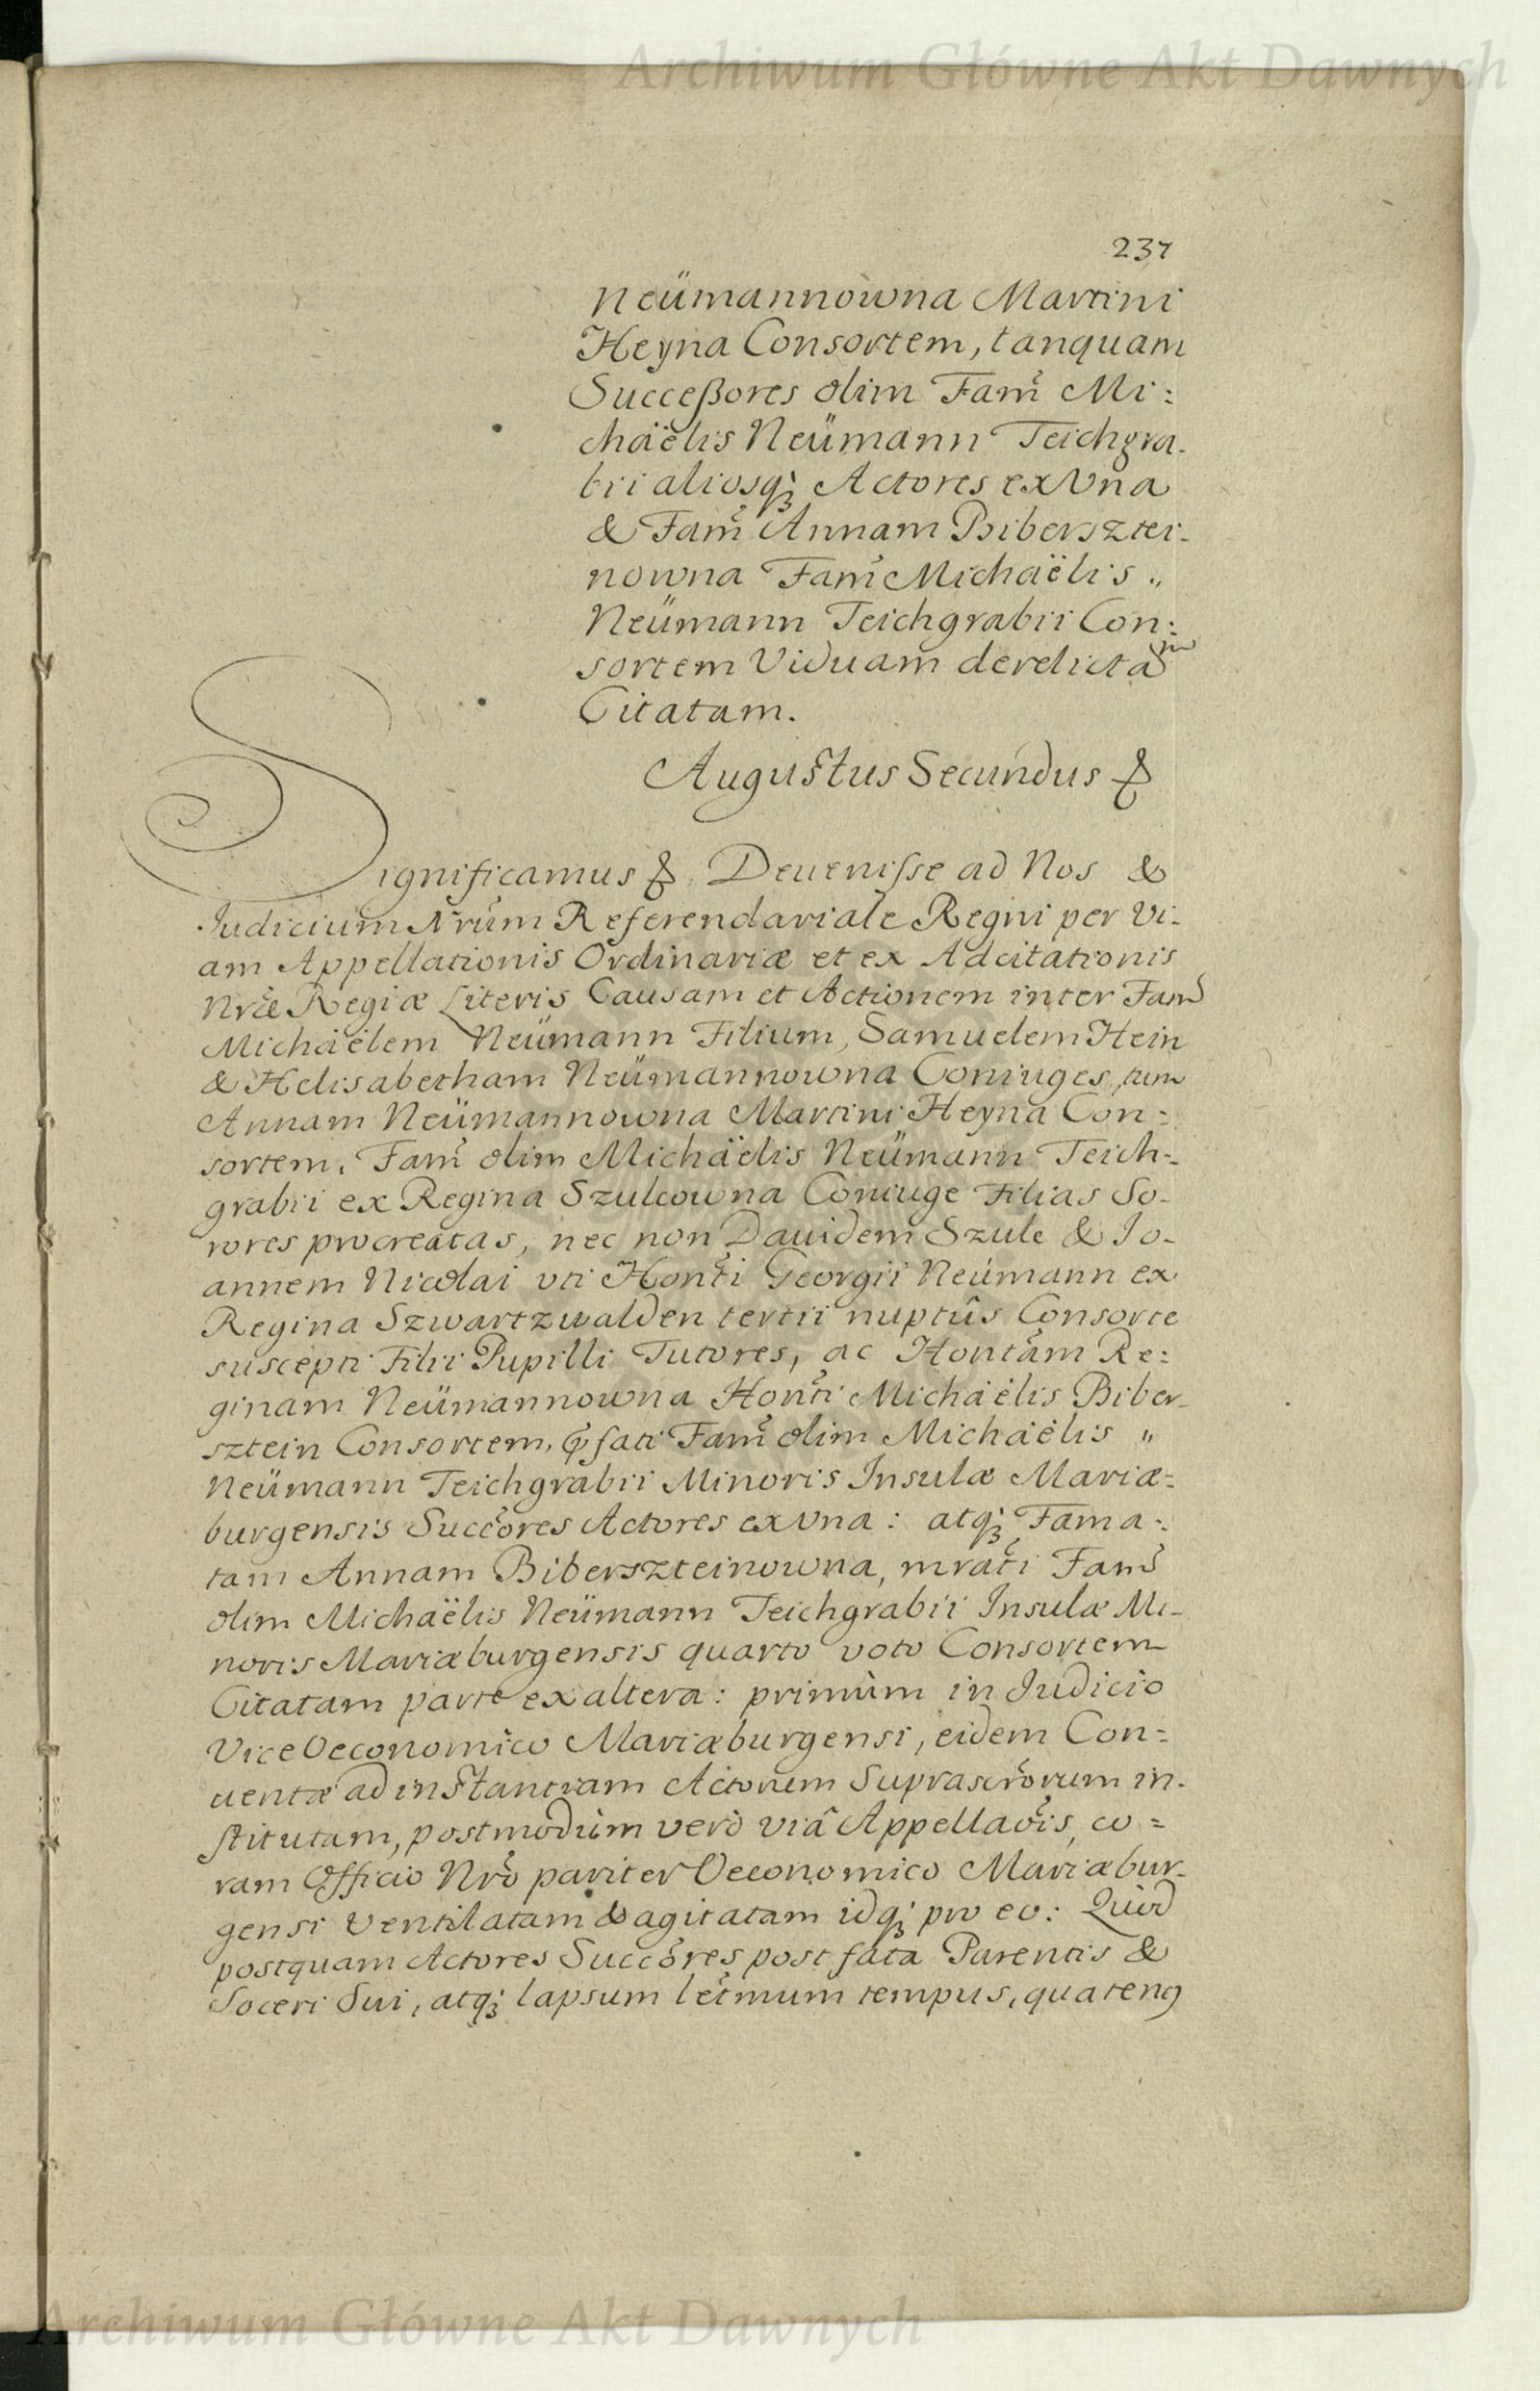 Archiwum Główne Akt Dawnych
237
Neümannowna Martini
Heyna Consortem, tanquam
Succeßores olim Fam̃ Mi:
chaëlis Neümann Teichgra-
bii aliosq; Actores ex Vna
& Fam̃ Annam Bibersztei-
nowna Fam̃ Michaëlis „
Neümann Teichgrabii Con:
sortem Viduam derelictam
Citatam.
Augustus Secundus &
Significamus & Deuenisse ad Nos &
Iudicium Nrũm Referendariale Regni per vi-
am Appellationis Ordinariæ et ex Adcitationis
Nræ̃ Regiæ Literis Causam et Actionem inter Fam̃
Michaëlem Neümann Filium, Samuelem Hein
& Helisabetham Neümannowna Coniuges, tum
Annam Neümannowna Martini Heyna Con:
sortem, Fam̃ olim Michaëlis Neümann Teich-
grabii ex Regina Szulcowna Coniuge Filias So-
rores procreatas, nec non Dauidem Szulc & Io-
annem Nicolai vti Hont̃i Georgii Neümann ex
Regina Szwartzwalden tertii nuptûs Consorte
suscepti Filii Pupilli Tutores, ac Hontãm Re:
ginam Neümannowna Hont̃i Michaëlis Biber-
sztein Consortem, p̃fati Fam̃ olim Michaëlis „
Neümann Teichgrabii Minoris Insulæ Mariæ-
burgensis Succõres Actores ex Vna: atq; Fama:
tam Annam Biberszteinowna, mrat̃i Fam̃
olim Michaëlis Neümann Teichgrabii Insulæ Mi-
noris Mariæburgensis quarto voto Consortem
Citatam parte ex altera: primùm in Iudicio
Vice Oeconomico Mariæburgensi, eidem Con:
uentæ ad instantiam Actorum Suprascr̃orum in-
stitutam, postmodùm verò viâ Appellaõis, co=
ram Officio Nrõ pariter Oeconomico Mariæbur-
gensi ventilatam & agitatam idq; pro eo: Quod
postquam Actores Succõres post fata Parentis &
Soceri Sui, atq; lapsum let̃mum tempus, quateng
Archiwum Główne Akt Dawnych